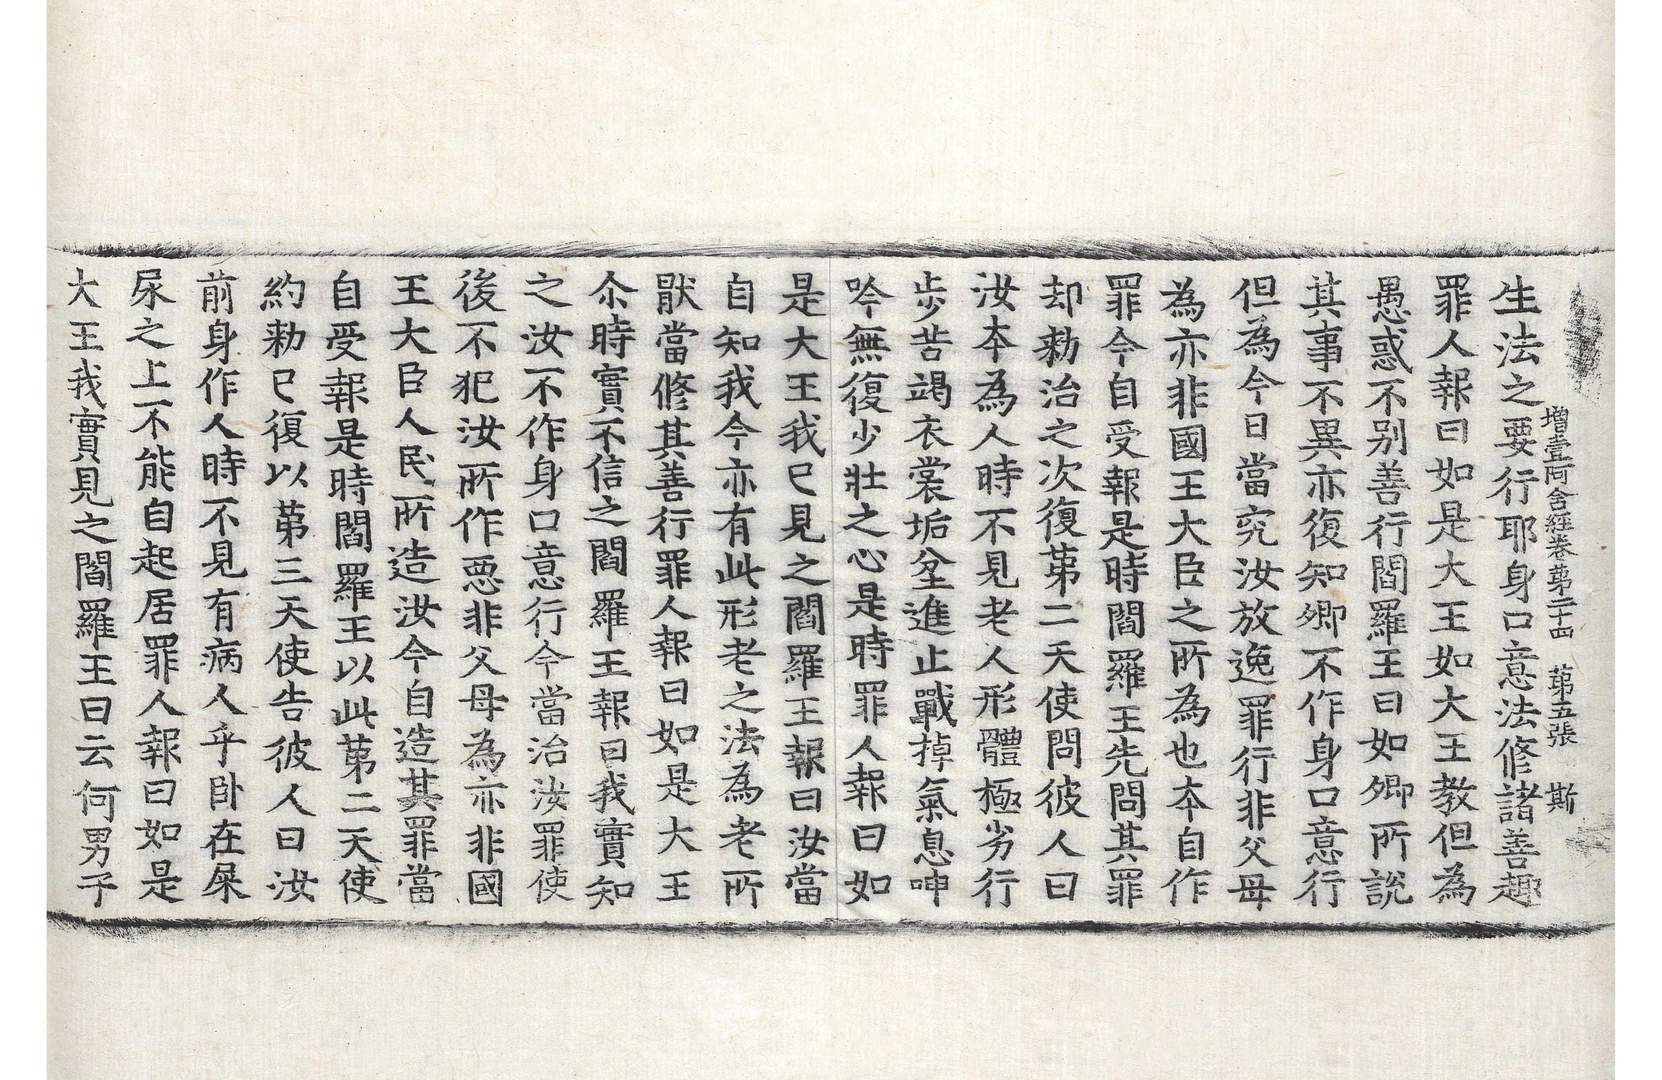 增壹阿含經卷第二十四 第五張 斯
生法之要行耶身口意法修諸善趣
罪人報曰如是大王如大王教但為
愚惑不別善行閻羅王曰如卿所說
其事不異亦復知卿不作身口意行
但為今日當究汝放逸罪行非父母
為亦非國王大臣之所為也本自作
罪今自受報是時閻羅王先問其罪
却勑治之次復苐二天使問彼人曰
汝本為人時不見老人形體極劣行
步苦竭衣裳垢坌進止戰掉氣息呻
吟無復少壯之心是時罪人報曰如
是大王我已見之閻羅王報曰汝當
自知我今亦有此形老之法為老所
猒當修其善行罪人報曰如是大王
尒時實不信之閻羅王報曰我實知
之汝不作身口意行今當治汝罪使
後不犯汝所作惡非父母為亦非國
王大臣人民所造汝今自造其罪當
自受報是時閻羅王以此苐二天使
約勑已復以苐三天使告彼人曰汝
前身作人時不見有病人乎卧在屎
尿之上不能自起居罪人報曰如是
大王我實見之閻羅王曰云何男子